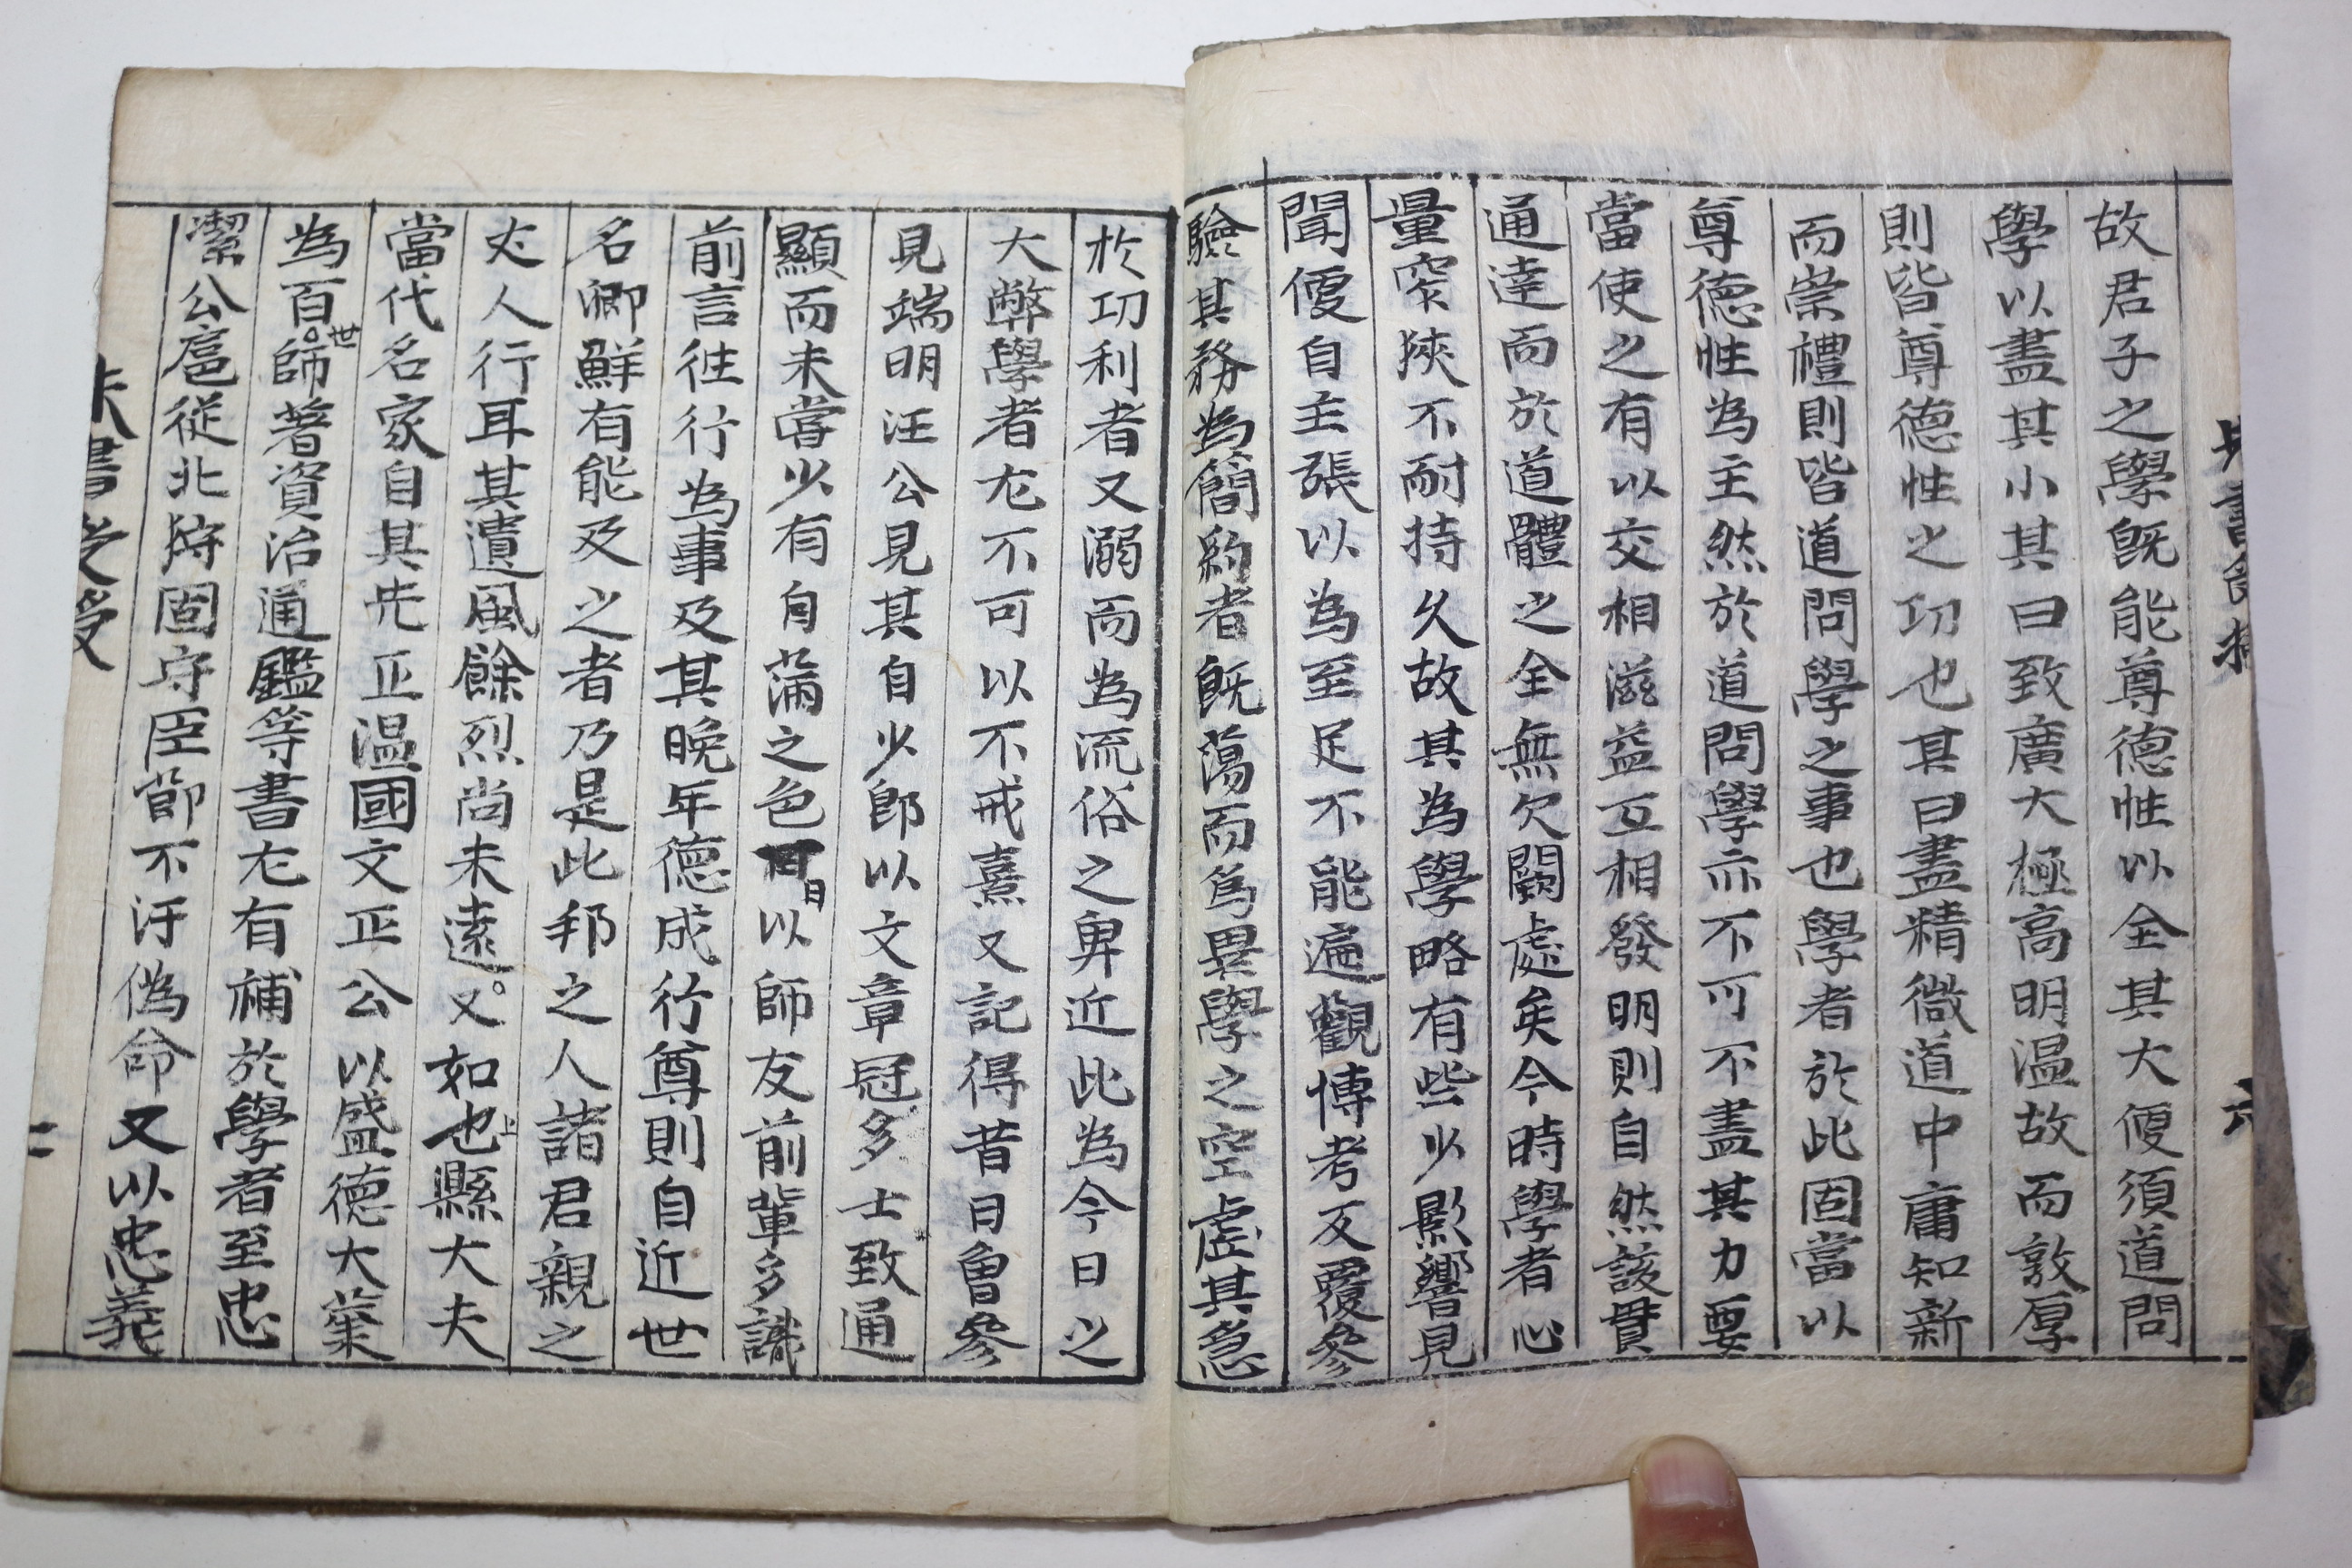 故君子之學旣能尊德性以全其大便須道問
學以盡其小其曰致廣大極高明温故而敦厚
則皆尊德性之功也其曰盡精微道中庸知新
而崇禮則皆道問學之事也學者於此固當以
尊德性為主然於道問學亦不可不盡其力要
當使之有以交相滋益互相發明則自然該貫
通達而於道體之全無欠闕處矣今時學者心
量窄狹不耐持久故其為學略有些少影響見
聞便自主張以為至足不能遍觀博考反覆參
驗其務為簡約者旣蕩而為異學之空虛其急
於功利者又溺而為流俗之卑近此為今日之
大弊學者尤不可以不戒熹又記得昔日曾參
見端明汪公見其自少即以文章冠多士致通
顯而未嘗少有自滿之色日以師友前輩多識
前言往行為事及其晚年德成行尊則自近世
名卿鮮有能及之者乃是此邦之人諸君親之
丈人行耳其遺風餘烈尚未遠又如也縣大夫
當代名家自其先正温國文正公以盛德大業
為百世師著資治通鑑等書尤有補於學者至忠
潔公扈從北狩固守臣節不汙僞命又以忠義
朱書